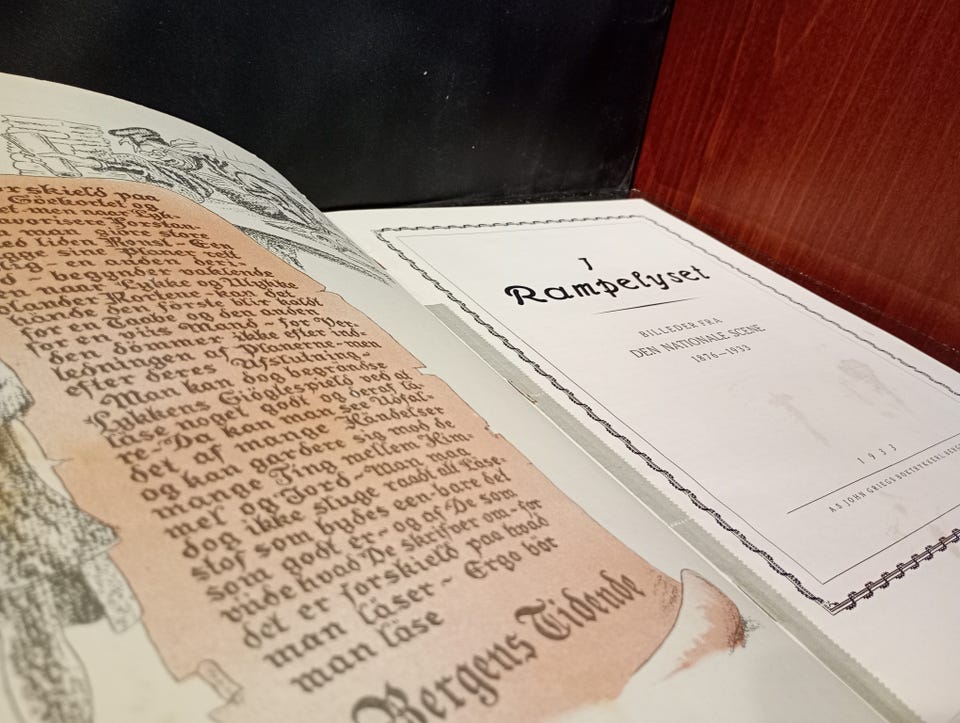 orskield paa
Göekorter og
et-men naar Lyk-
favorisere Forstan-
man sine store
ed liden Konst-Een
ge sine Penner rett
og en anden det
begynder vaklende
en naar Lykke og Ulykke
blander Kortene saa det
hænde den förste blir holdt
for en Taabe og den anden
for en viis Mand - for Ver-
den dömmer ikke efter ind-
ledningen af Personerne-men
efter deres Afslutning-
Man kan dog begrændse
Lykkens Giöglespield ved at
läse noget godt og deraf lä-
re-Da kan man see Udfal-
det af mange Händelser
og kan gardere sig mod de
mange Ting mellem Him-
mel og Jord-Man maa
dog ikke sluge raadt alt Läse-
stof som bydes een-bare det
som godt er-og af De som
viide hvad De skrifver om-for
det er forskield paa hvad
man läser - Ergo bör
man läse
Bergens Tidende
I
Rampelyset
BILLEDER FRA
DEN NATIONALE SCENE
1876—1933
1933
A.S JOHN GRIEGS BOKTRYKKERI, BERG